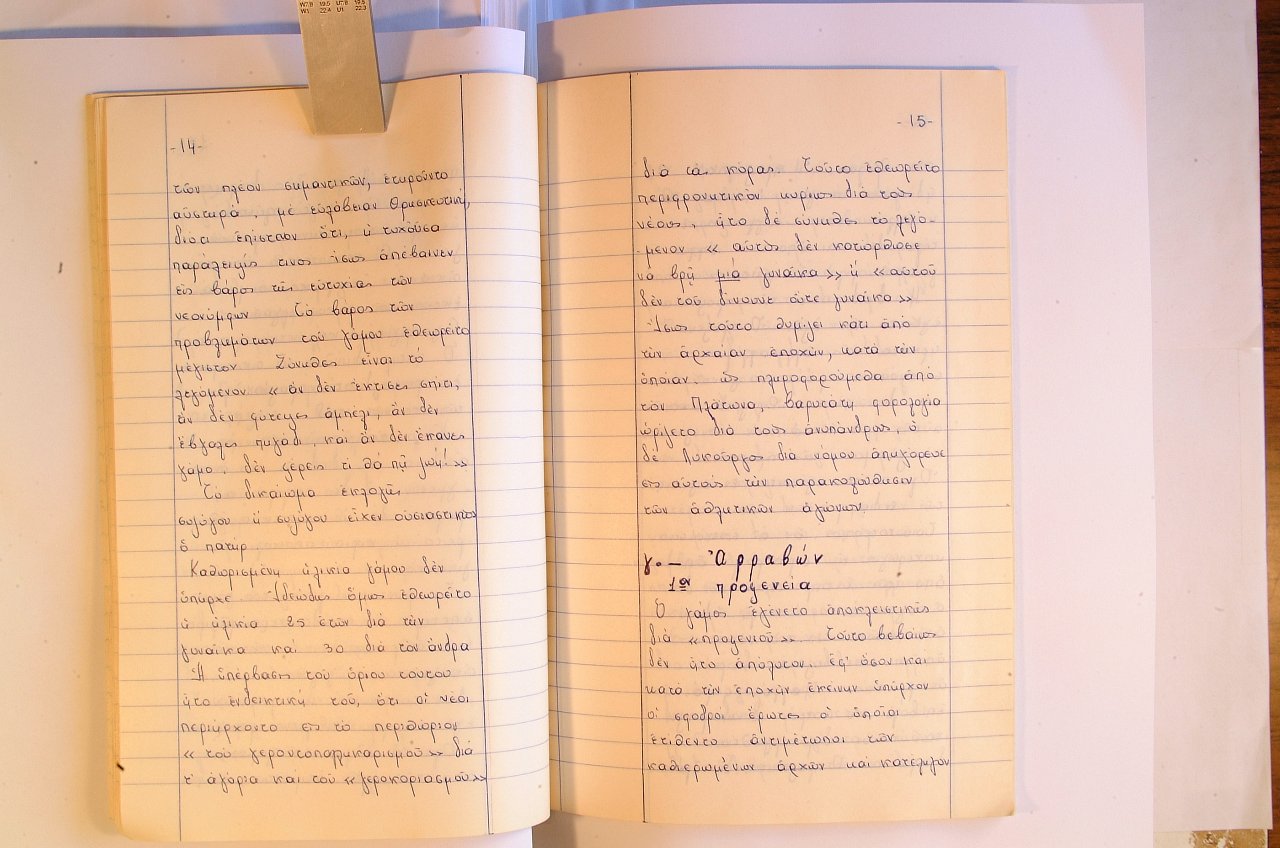 W7.8 19.5 U7.8 19.5
W1 22.4 U1 22.3
-14-
τῶν πλέον σημαντικῶν, ἐτηροῦντο
αὐστηρά, μέ εὐλάβειαν θρησκευτική,
διότι ἐπίστευον ὅτι, ἡ τυχοῦσα
παράλειψίς τινος ἴσως ἀπέβαινεν
εἰς βάρος τῆς εὐτυχίας τῶν
νεονύμφων. Τό βάρος τῶν
προβλημάτων τοῦ γάμου ἐθεωρεῖτο
μέγιστον. Σύνηθες εἶναι τό
λεγόμενον « ἄν δέν ἔκτισες σπίτι,
ἄν δέν φύτεψες ἀμπέλι, ἄν δέν
ἔβγαλες πηγάδι, καί ἄν δέν ἔκανες
γάμο, δέν ξέρεις τί θά πῆ ζωή! »
Τό δικαίωμα ἐκλογῆς
συζύγου ἤ συζύγου εἶχεν οὐσιαστικῶς
ὁ πατήρ.
Καθωρισμένη ἡλικία γάμου δέν
ὑπῆρχε. Ἰδεώδης ὅμως ἐθεωρεῖτο
ἡ ἡλικία 25 ἐτῶν διά τήν
γυναῖκα καί 30 διά τόν ἄνδρα
Ἡ ὑπέρβασις τοῦ ὁρίου τούτου
ἦτο ἐνδεικτική τοῦ, ὅτι οἱ νέοι
περιήρχοντο εἰς τό περιθώριον
« τοῦ γεροντοπαλληκαρισμοῦ » διά
τ' ἀγόρια καί τοῦ « γεροκοριασμοῦ »
-15-
διά τάς κόρας. Τοῦτο ἐθεωρεῖτο
περιφρονητικόν κυρίως διά τούς
νέους, ἦτο δέ σύνηθες τό λεγό-
μενον « αὐτός δέν κατώρθωσε
νά βρῆ μιά γυναίκα » ἤ « αὐτοῦ
δέν τοῦ δίνουνε οὔτε γυναίκα »
Ἴσως τοῦτο θυμίζει κάτι ἀπό
τήν ἀρχαίαν ἐποχήν, κατά τήν
ὁποίαν, ὡς πληροφορούμεθα ἀπό
τόν Πλάτωνα, βαρυτάτη φορολογία
ὡρίζετο διά τούς ἀνυπάνδρους, ὁ
δέ Λυκοῦργος διά νόμου ἀπηγόρευε
εἰς αὐτούς τήν παρακολούθησιν
τῶν ἀθλητικῶν ἀγώνων.
γ. - Ἀρραβών
1ον προξενεία
Ὁ γάμος ἐγένετο ἀποκλειστικῶς
διά «προξενιοῦ». Τοῦτο βεβαίως
δέν ἦτο ἀπόλυτον, ἐφ' ὅσον καί
κατά τήν ἐποχήν ἐκείνην ὑπῆρχον
οἱ σφοδροί ἔρωτες οἱ ὁποῖοι
ἐτίθεντο ἀντιμέτωποι τῶν
καθιερωμένων ἀρχῶν καί κατέληγον